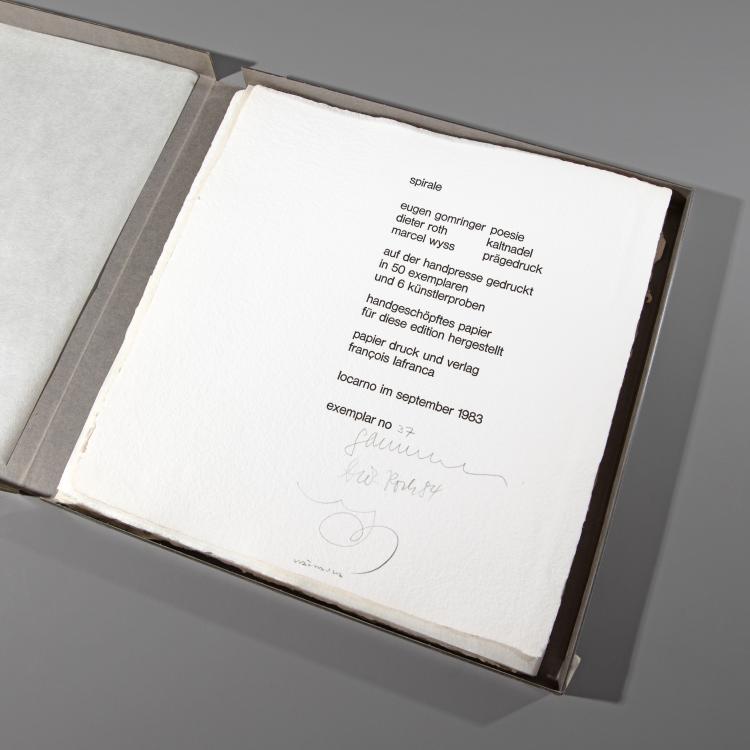 spirale
eugen gomringer poesie
dieter roth kaltnadel
marcel wyss prägedruck
auf der handpresse gedruckt
in 50 exemplaren
und 6 künstlerproben
handgeschöpftes papier
für diese edition hergestellt
papier druck und verlag
françois lafranca
locarno im september 1983
exemplar no 37
Roth 84